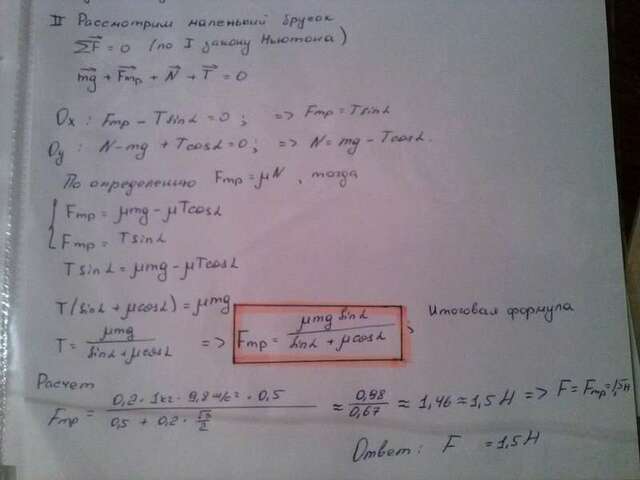 II Рассмотрим маленький брусок
ΣF⃗ = 0 (по I закону Ньютона)
m⃗g + F⃗тр + N⃗ + T⃗ = 0
Ox : Fтр - Tsinα = 0 ; => Fтр = Tsinα
Oy : N - mg + Tcosα = 0 ; => N = mg - Tcosα.
По определению Fтр = μN , тогда
{ Fтр = μmg - μTcosα
{ Fтр = Tsinα
Tsinα = μmg - μTcosα
T(sinα + μcosα) = μmg
T = μmg / (sinα + μcosα) => Fтр = μmg sinα / (sinα + μcosα) ; Итоговая формула
Расчет
Fтр = (0,2 · 1кг · 9,8м/с² · 0,5) / (0,5 + 0,2 · √3/2) ≈ 0,98/0,67 ≈ 1,46 ≈ 1,5 Н => F = Fтр = 1,5Н
Ответ: F = 1,5Н